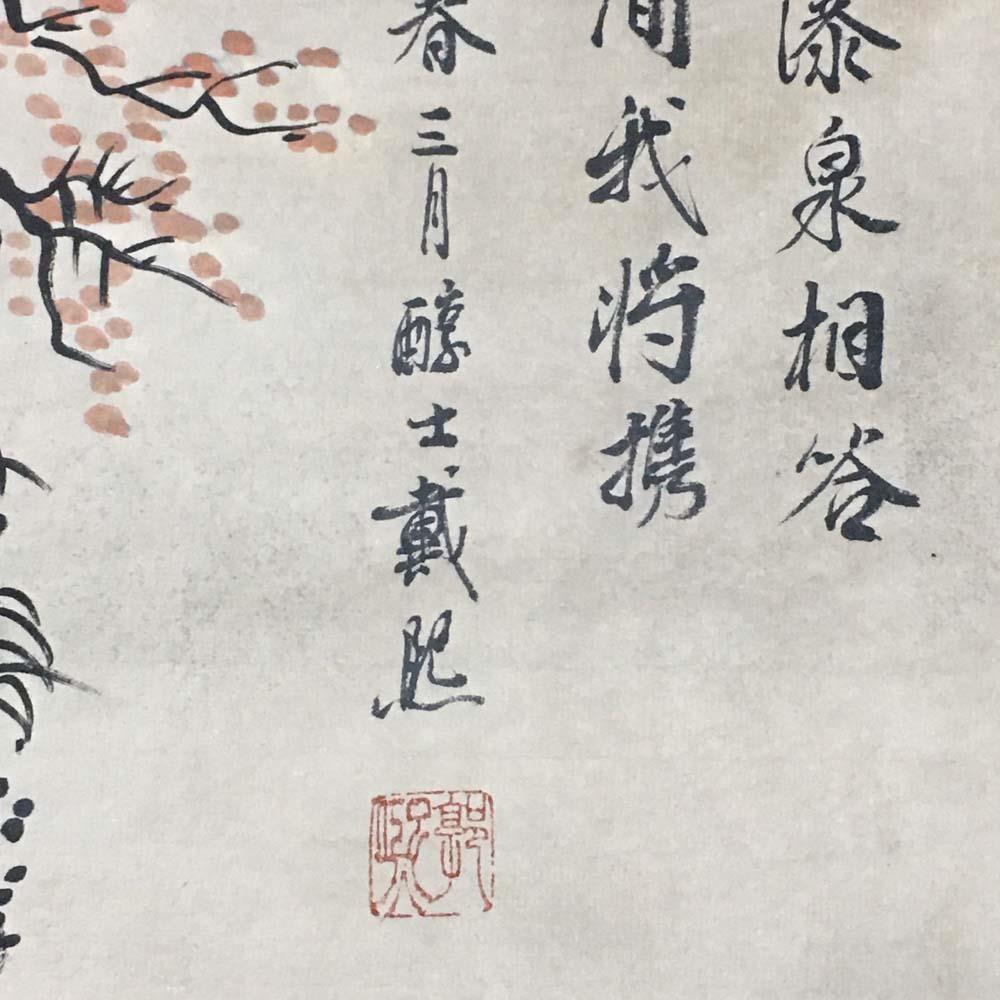 瀑泉相答
間我将携
春三月醇士戴熙